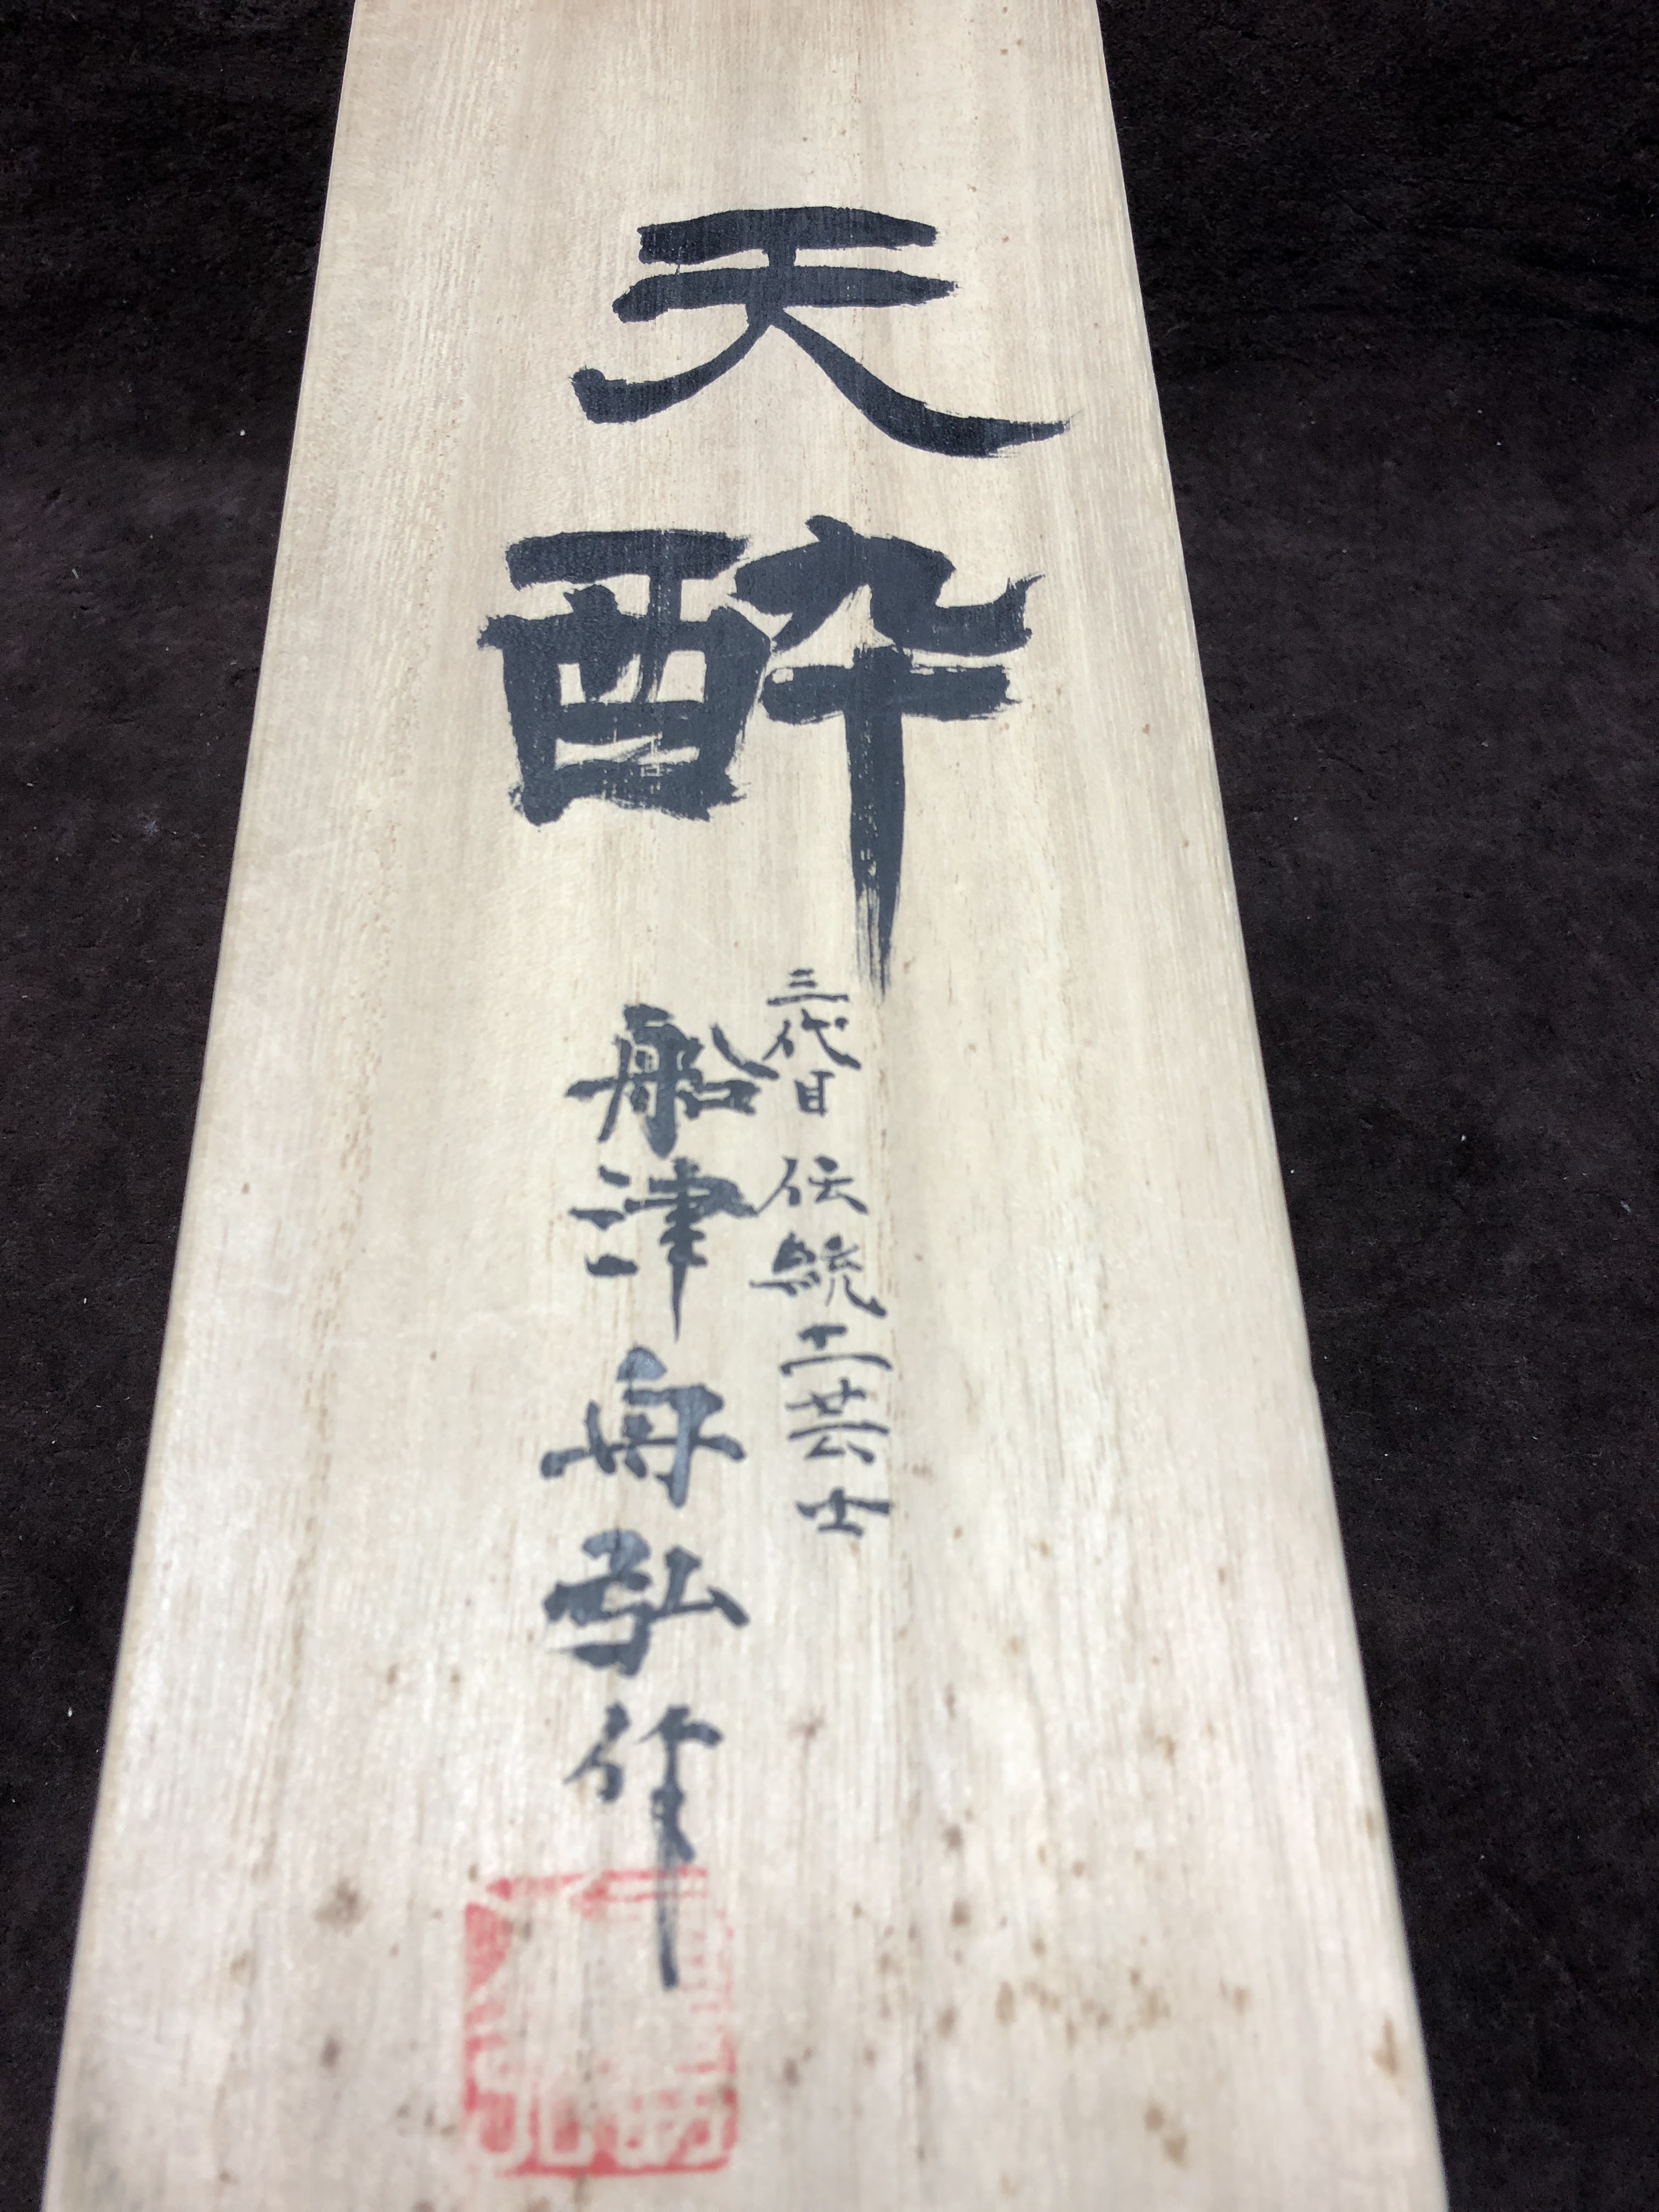 天酔
三代目 伝統工芸士
船津舟弘作